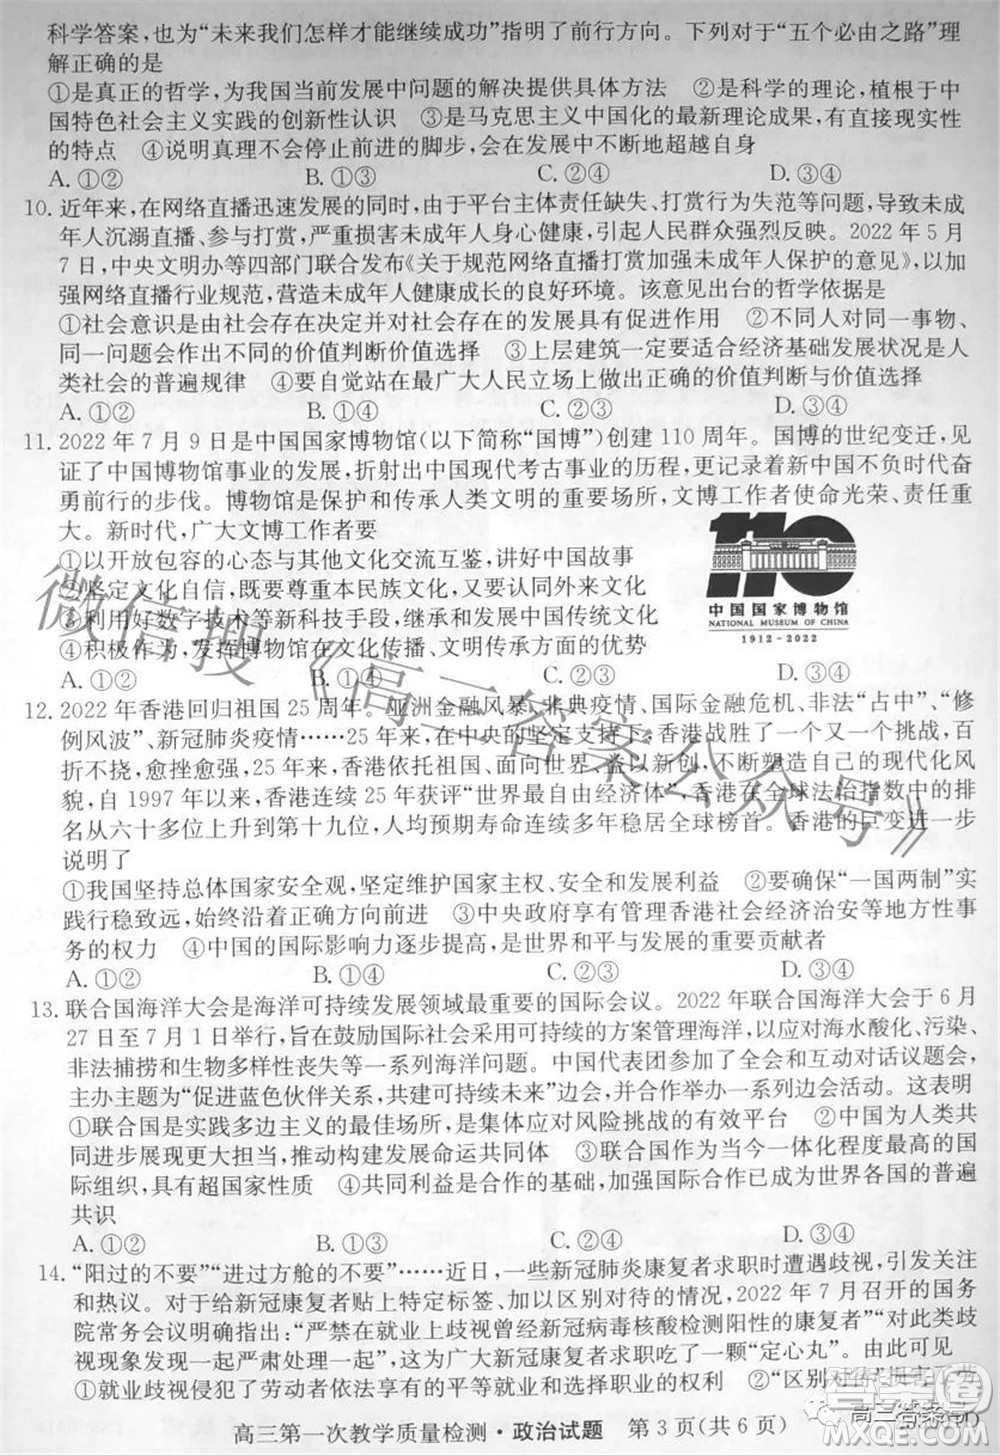 科学答案，也为“未来我们怎样才能继续成功”指明了前行方向。下列对于“五个必由之路”理
解正确的是
①是真正的哲学，为我国当前发展中问题的解决提供具体方法　②是科学的理论，植根于中
国特色社会主义实践的创新性认识　③是马克思主义中国化的最新理论成果，有直接现实性
的特点　④说明真理不会停止前进的脚步，会在发展中不断地超越自身
A. ①②　B. ①③　C. ②④　D. ③④
10. 近年来，在网络直播迅速发展的同时，由于平台主体责任缺失、打赏行为失范等问题，导致未成
年人沉溺直播、参与打赏，严重损害未成年人身心健康，引起人民群众强烈反映。2022 年 5 月
7 日，中央文明办等四部门联合发布《关于规范网络直播打赏加强未成年人保护的意见》，以加
强网络直播行业规范，营造未成年人健康成长的良好环境。该意见出台的哲学依据是
①社会意识是由社会存在决定并对社会存在的发展具有促进作用　②不同人对同一事物、
同一问题会作出不同的价值判断价值选择　③上层建筑一定要适合经济基础发展状况是人
类社会的普遍规律　④要自觉站在最广大人民立场上做出正确的价值判断与价值选择
A. ①②　B. ①③　C. ②④　D. ③④
11. 2022 年 7 月 9 日是中国国家博物馆(以下简称“国博”)创建 110 周年。国博的世纪变迁，见
证了中国博物馆事业的发展，折射出中国现代考古事业的历程，更记录着新中国不负时代奋
勇前行的步伐。博物馆是保护和传承人类文明的重要场所，文博工作者使命光荣、责任重
大。新时代，广大文博工作者要
①以开放包容的心态与其他文化交流互鉴，讲好中国故事
②坚定文化自信，既要尊重本民族文化，又要认同外来文化
③利用好数字技术等新科技手段，继承和发展中国传统文化
④积极作为，发挥博物馆在文化传播、文明交流方面的优势
110
中国国家博物馆
NATIONAL MUSEUM OF CHINA
1912-2022
A. ①②　B. ①④　C. ②③　D. ③④
12. 2022 年香港回归祖国 25 周年。亚洲金融风暴、非典疫情、国际金融危机、非法“占中”、“修
例风波”、新冠肺炎疫情……25 年来，在中央的坚定支持下，香港一次又一次战胜了挑战，百
折不挠，愈战愈勇，25 年来，香港依托祖国、面向世界、益以新创，不断塑造自己的现代化风
貌，自 1997 年以来，香港连续 25 年获评“世界最自由经济体”，香港在全球法治指数中的排
名从六十多位上升到第十九位，人均预期寿命连续多年稳居全球榜首。香港的巨变进一步
说明了
①我国坚持总体国家安全观，坚定维护国家主权、安全、发展利益　②要确保“一国两制”实
践行稳致远，始终沿着正确方向前进　③中央政府享有管理香港社会经济治安等地方性事
务的权力　④中国的国际影响力逐步提高，是世界和平与发展的重要贡献者
A. ①②　B. ①④　C. ②③　D. ③④
13. 联合国海洋大会是海洋可持续发展领域最重要的国际会议。2022 年联合国海洋大会于 6 月
27 日至 7 月 1 日举行，旨在鼓励国际社会采用可持续的方案管理海洋，以应对海水酸化、污染、
非法捕捞和生物多样性丧失等一系列海洋问题。中国代表团参加了全会和互动对话议题会，
主办主题为“促进蓝色伙伴关系，共建可持续未来”边会，并合作举办一系列边会活动。这表明
①联合国是实践多边主义的最佳场所，是集体应对风险挑战的有效平台　②中国为人类共
同进步展现更大担当，推动构建发展命运共同体　③联合国作为当今一体化程度最高的国
际组织，兼具超国家性质　④共同利益是合作的基础，加强国际合作已成为世界各国的普遍
共识
A. ①②　B. ①③　C. ②④　D. ③④
14. “阳过的不要”“进过方舱的不要”……近日，一些新冠肺炎康复者求职时遭遇歧视，引发关注
和热议。对于给新冠康复者贴上特定标签、加以区别对待的情况，2022 年 7 月召开的国务
院常务会议明确指出：“严禁在就业上歧视曾经新冠病毒核酸检测阳性的康复者”“对此类歧
视现象发现一起严肃处理一起”，这为广大新冠康复者求职吃了一颗“定心丸”。由此可见
①就业歧视侵犯了劳动者依法享有的平等就业和选择职业的权利　②“区别对待”损害了
高三第一次教学质量检测·政治试题　第 3 页(共 6 页)
微信搜《高三答案公众号》